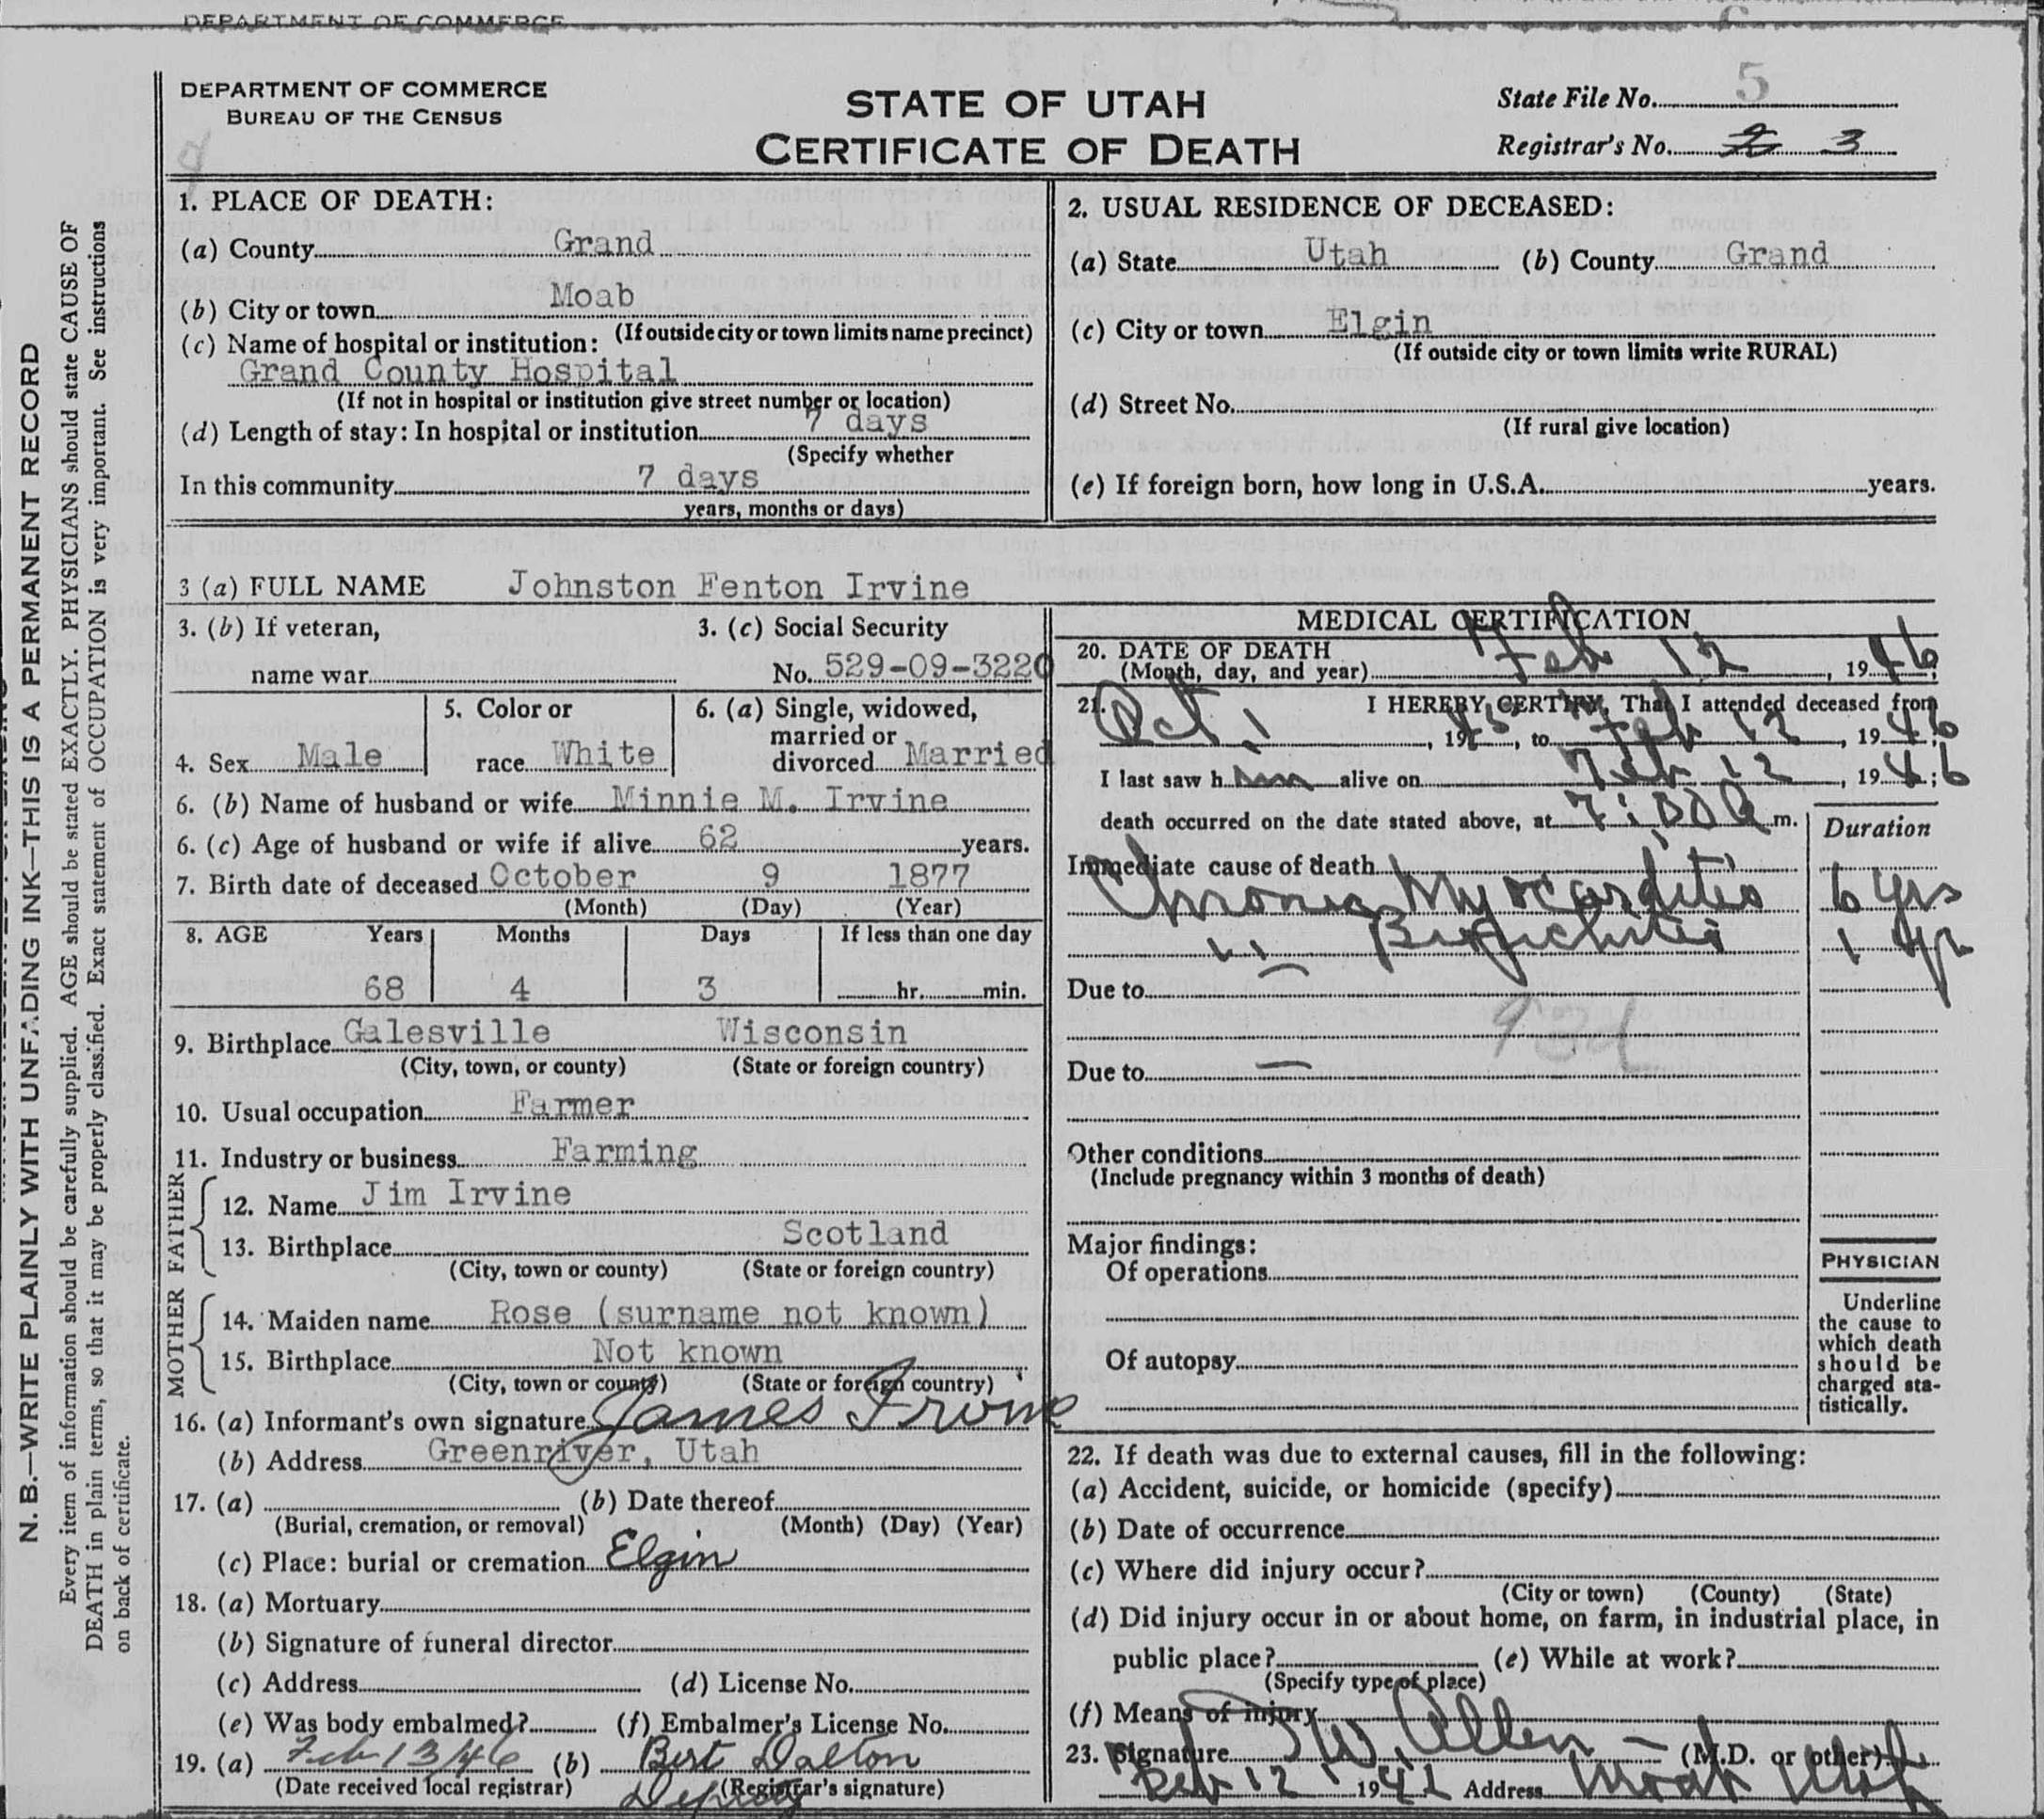 DEPARTMENT OF COMMERCE
DEPARTMENT OF COMMERCE
BUREAU OF THE CENSUS
STATE OF UTAH
CERTIFICATE OF DEATH
State File No. 5
Registrar's No. 2 3
N. B.—WRITE PLAINLY WITH UNFADING INK—THIS IS A PERMANENT RECORD
Every item of information should be carefully supplied. AGE should be stated EXACTLY. PHYSICIANS should state CAUSE OF
DEATH in plain terms, so that it may be properly classified. Exact statement of OCCUPATION is very important. See instructions
on back of certificate.
1. PLACE OF DEATH:
(a) County Grand
(b) City or town Moab
(If outside city or town limits name precinct)
(c) Name of hospital or institution:
Grand County Hospital
(If not in hospital or institution give street number or location)
(d) Length of stay: In hospital or institution 7 days
(Specify whether
In this community 7 days
years, months or days)
2. USUAL RESIDENCE OF DECEASED:
(a) State Utah (b) County Grand
(c) City or town Elgin
(If outside city or town limits write RURAL)
(d) Street No.
(If rural give location)
(e) If foreign born, how long in U.S.A. years.
3 (a) FULL NAME Johnston Fenton Irvine
3. (b) If veteran,
name war
3. (c) Social Security
No. 529-09-3220
4. Sex Male
5. Color or
race White
6. (a) Single, widowed,
married or
divorced Married
6. (b) Name of husband or wife Minnie M. Irvine
6. (c) Age of husband or wife if alive 62 years.
7. Birth date of deceased October 9 1877
(Month) (Day) (Year)
8. AGE Years Months Days If less than one day
68 4 3 hr. min.
9. Birthplace Galesville Wisconsin
(City, town, or county) (State or foreign country)
10. Usual occupation Farmer
11. Industry or business Farming
FATHER
12. Name Jim Irvine
13. Birthplace Scotland
(City, town or county) (State or foreign country)
MOTHER
14. Maiden name Rose (surname not known)
15. Birthplace Not known
(City, town or county) (State or foreign country)
16. (a) Informant's own signature James Irvine
(b) Address Greenriver, Utah
17. (a) (b) Date thereof
(Burial, cremation, or removal) (Month) (Day) (Year)
(c) Place: burial or cremation Elgin
18. (a) Mortuary
(b) Signature of funeral director
(c) Address (d) License No.
(e) Was body embalmed? (f) Embalmer's License No.
19. (a) Feb 13/46 (b) Bert Dalton
(Date received local registrar) (Registrar's signature)
Deputy
MEDICAL CERTIFICATION
20. DATE OF DEATH
(Month, day, and year) Feb 12, 1946;
21. I HEREBY CERTIFY, That I attended deceased from
Oct 1, 19 , to Feb 12, 1946;
I last saw h im alive on Feb 12, 1946;
death occurred on the date stated above, at 7:00 a m.
Duration
Immediate cause of death
Chronic Myocarditis 6 yrs
" 1 yr
Due to —
92d
Due to —
Other conditions
(Include pregnancy within 3 months of death)
Major findings:
Of operations
Of autopsy
PHYSICIAN
Underline
the cause to
which death
should be
charged sta-
tistically.
22. If death was due to external causes, fill in the following:
(a) Accident, suicide, or homicide (specify)
(b) Date of occurrence
(c) Where did injury occur?
(City or town) (County) (State)
(d) Did injury occur in or about home, on farm, in industrial place, in
public place? (e) While at work?
(Specify type of place)
(f) Means of injury
23. Signature Allen — (M.D. or other)
Feb 12 19 Address Moab Utah